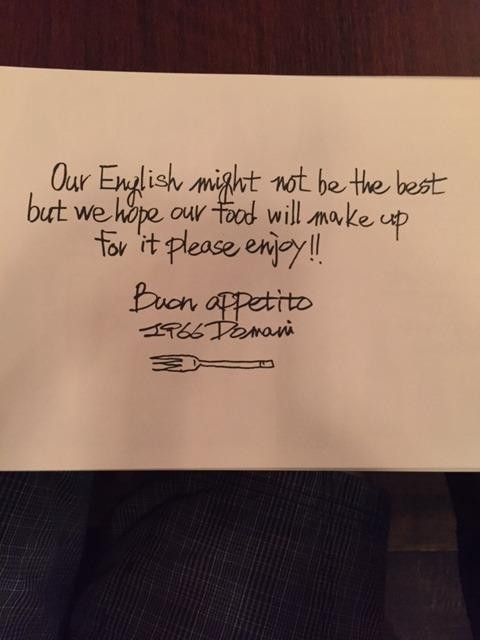 Our English might not be the best
but we hope our food will make up
for it please enjoy!!
Buon appetito
1966 Domani